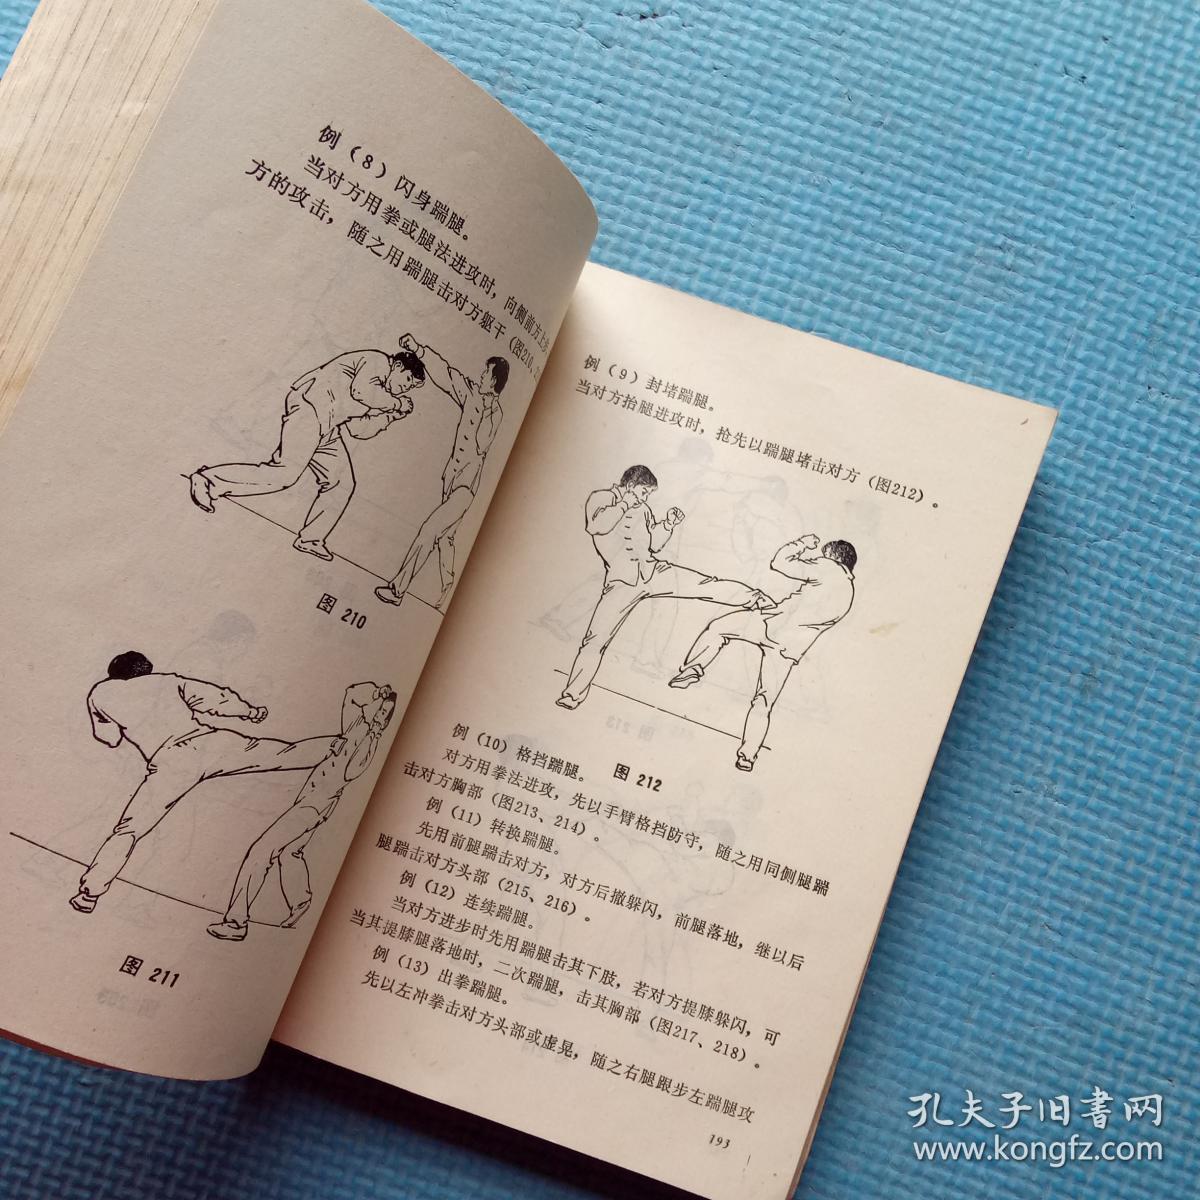 例（8）闪身踹腿。
当对方用拳或腿法进攻时，向侧前方上步
方的攻击，随之用踹腿击对方躯干（图210、
图 210
图 211
例（9）封堵踹腿。
当对方抬腿进攻时，抢先以踹腿堵击对方（图212）。
图 212
例（10）格挡踹腿。
对方用拳法进攻，先以手臂格挡防守，随之用同侧腿踹
击对方胸部（图213、214）。
例（11）转换踹腿。
先用前腿踹击对方，对方后撤躲闪，前腿落地，继以后
腿踹击对方头部（215、216）。
例（12）连续踹腿。
当对方进步时先用踹腿击其下肢，若对方提膝躲闪，可
当其提膝腿落地时，二次踹腿，击其胸部（图217、218）。
例（13）出拳踹腿。
先以左冲拳击对方头部或虚晃，随之右腿跟步左踹腿攻
193
孔夫子旧书网
www.kongfz.com